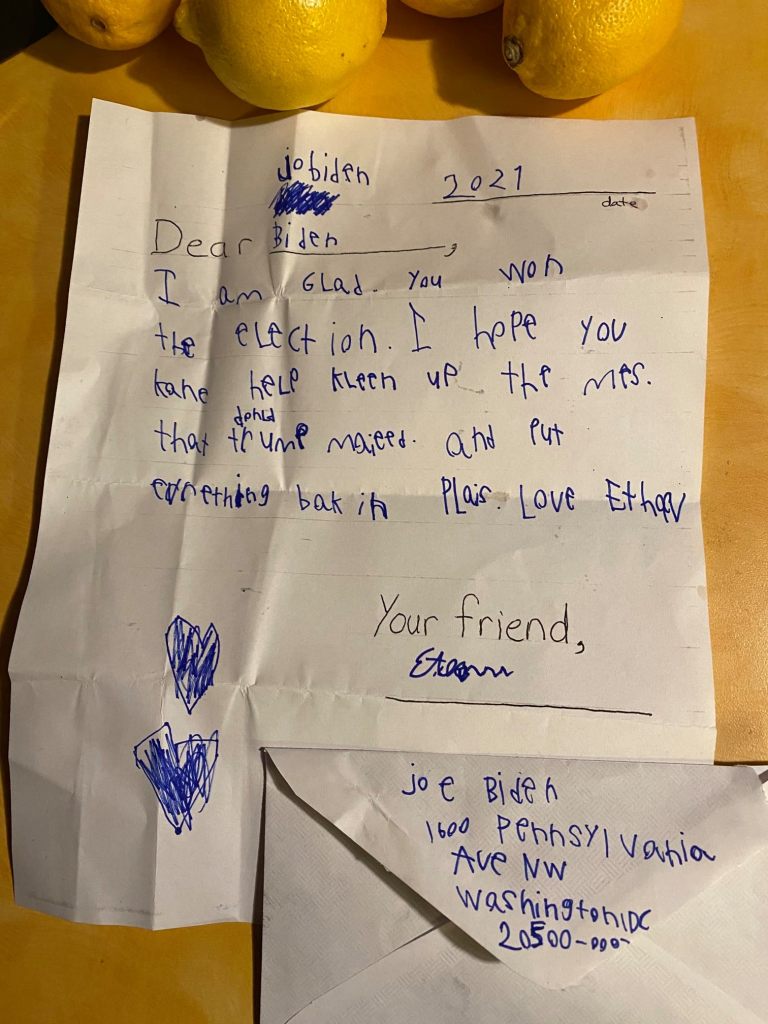 jo biden
2021
date
Dear Biden,
I am GLad. You won
the eLection. I hope you
kane heLP kLeen up the mes.
donld
that trump majeed. and Put
evrething bak in PLais. Love Ethan
Your friend,
joe Biden
1600 Pennsylvania
Ave NW
Washington DC
20500-000